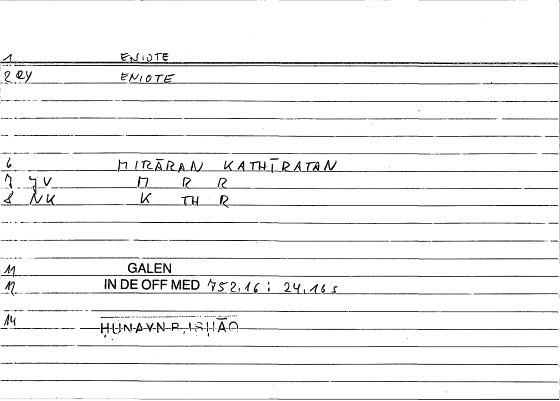 1 ENIOTE
2 QY ENIOTE
6 MIRĀRAN KATHĪRATAN
7 JV M R R
8 NK K TH R
11 GALEN
12 IN DE OFF MED 752,16; 24,16s
14 ḤUNAYN B. ISḤĀQ